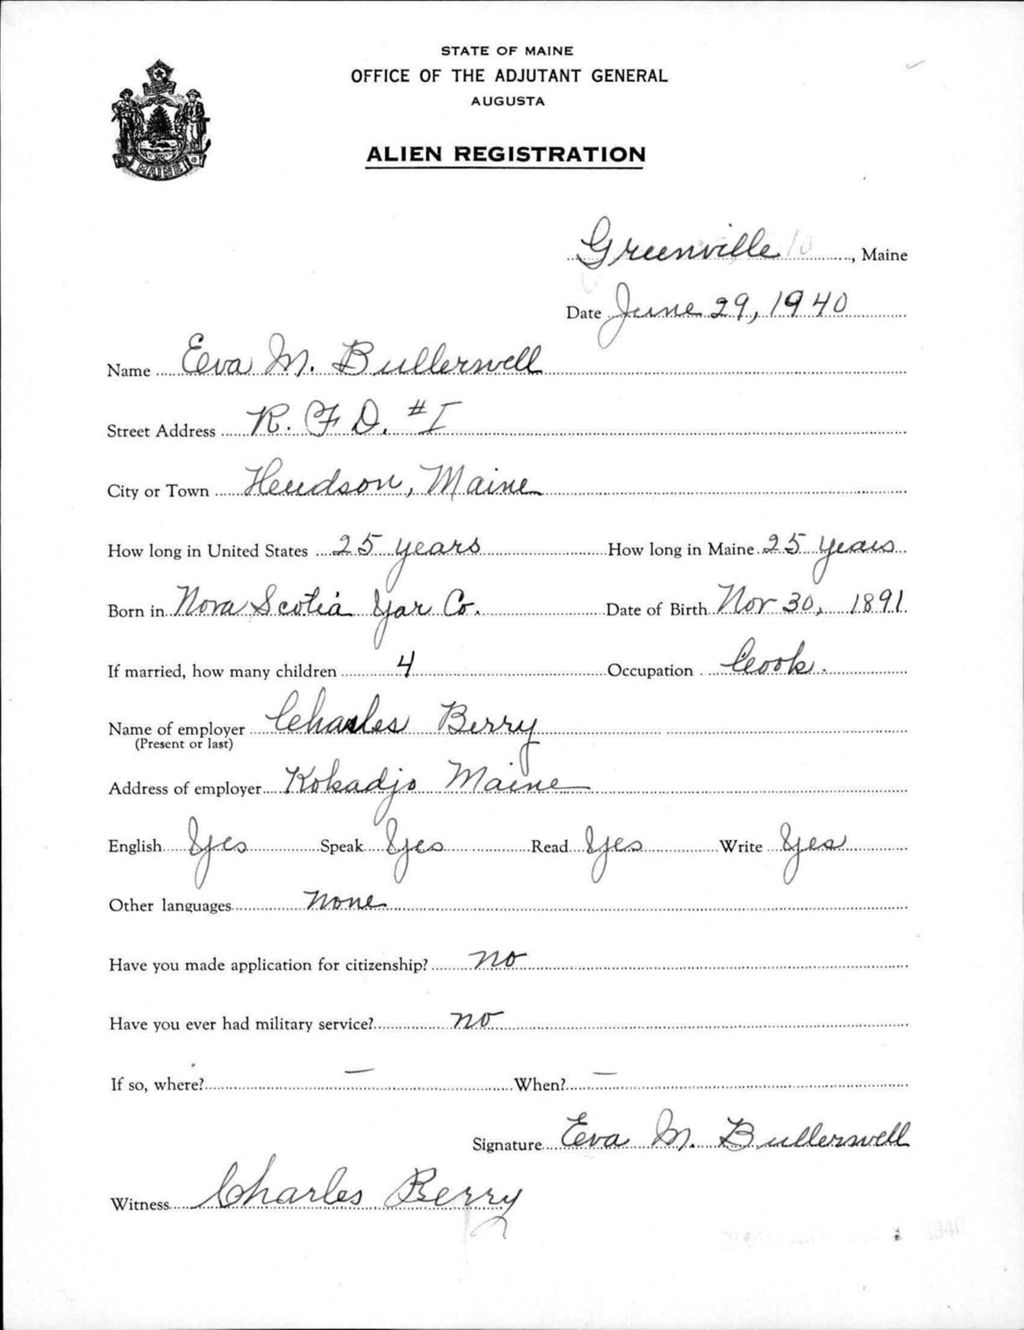 STATE OF MAINE
OFFICE OF THE ADJUTANT GENERAL
AUGUSTA
ALIEN REGISTRATION
MAINE
Greenville, Maine
Date June 29, 1940
Name Eva M. Bullerwell
Street Address R. F. D. #1
City or Town Hudson, Maine
How long in United States 25 years How long in Maine 25 years
Born in Nova Scotia Yar Co. Date of Birth Nov 30, 1891
If married, how many children 4 Occupation Cook.
Name of employer Charles Berry
(Present or last)
Address of employer Kokadjo Maine
English Yes Speak Yes Read Yes Write Yes
Other languages None
Have you made application for citizenship? No
Have you ever had military service? No
If so, where? — When? —
Signature Eva M. Bullerwell
Witness Charles Berry